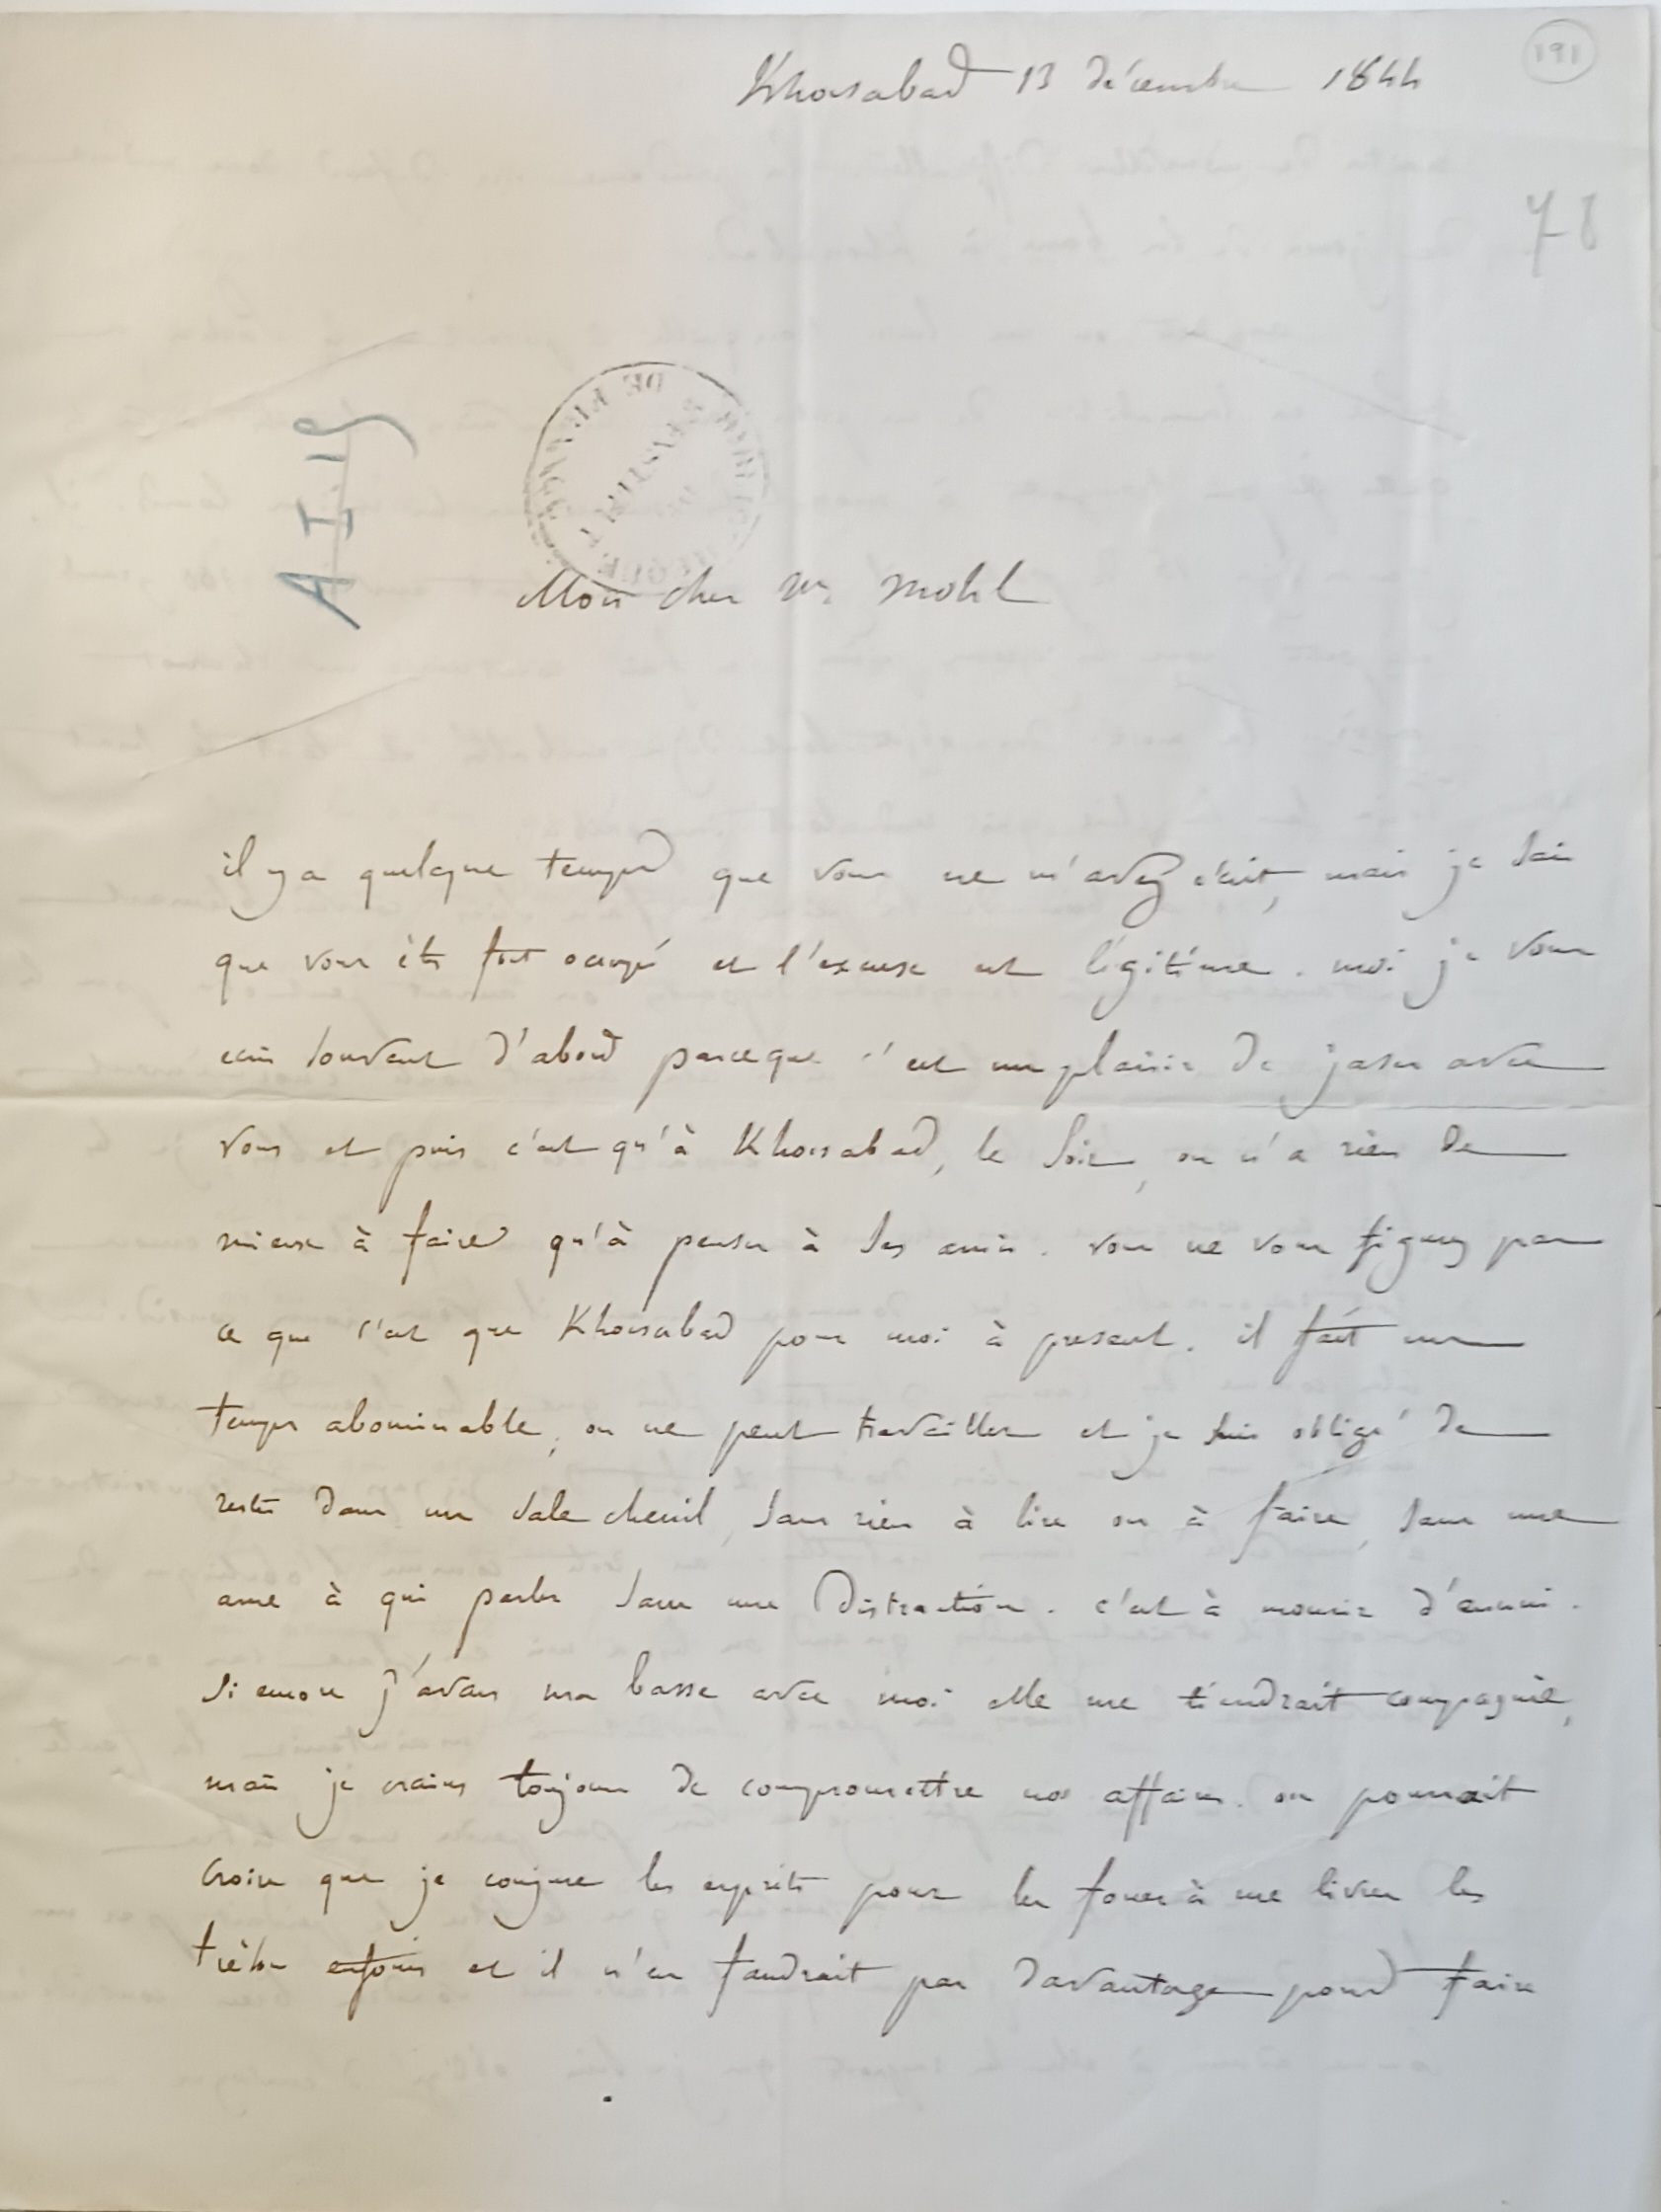 191
Khorsabad 13 décembre 1844
78
A I 15
Mon cher Mr Mohl
il y a quelque temps que vous ne m'avez écrit, mais je sais
que vous êtes fort occupé et l'excuse est légitime. moi je vous
écris souvent d'abord parceque c'est un plaisir de jaser avec
vous et puis c'est qu'à Khorsabad, le soir, on n'a rien de
mieux à faire qu'à penser à ses amis. vous ne vous figurez pas
ce que c'est que Khorsabad pour moi à present. il fait un
temps abominable, on ne peut travailler et je suis obligé de
rester dans un sale chenil, sans rien à lire ou à faire, sans une
ame à qui parler sans une distraction. c'est à mourir d'ennui.
si encore j'avais ma basse avec moi elle me tiendrait compagnie,
mais je crains toujours de compromettre nos affaires. on pourrait
croire que je conjure les esprits pour les forcer à me livrer les
trésors enfouis et il n'en faudrait pas davantage pour faire